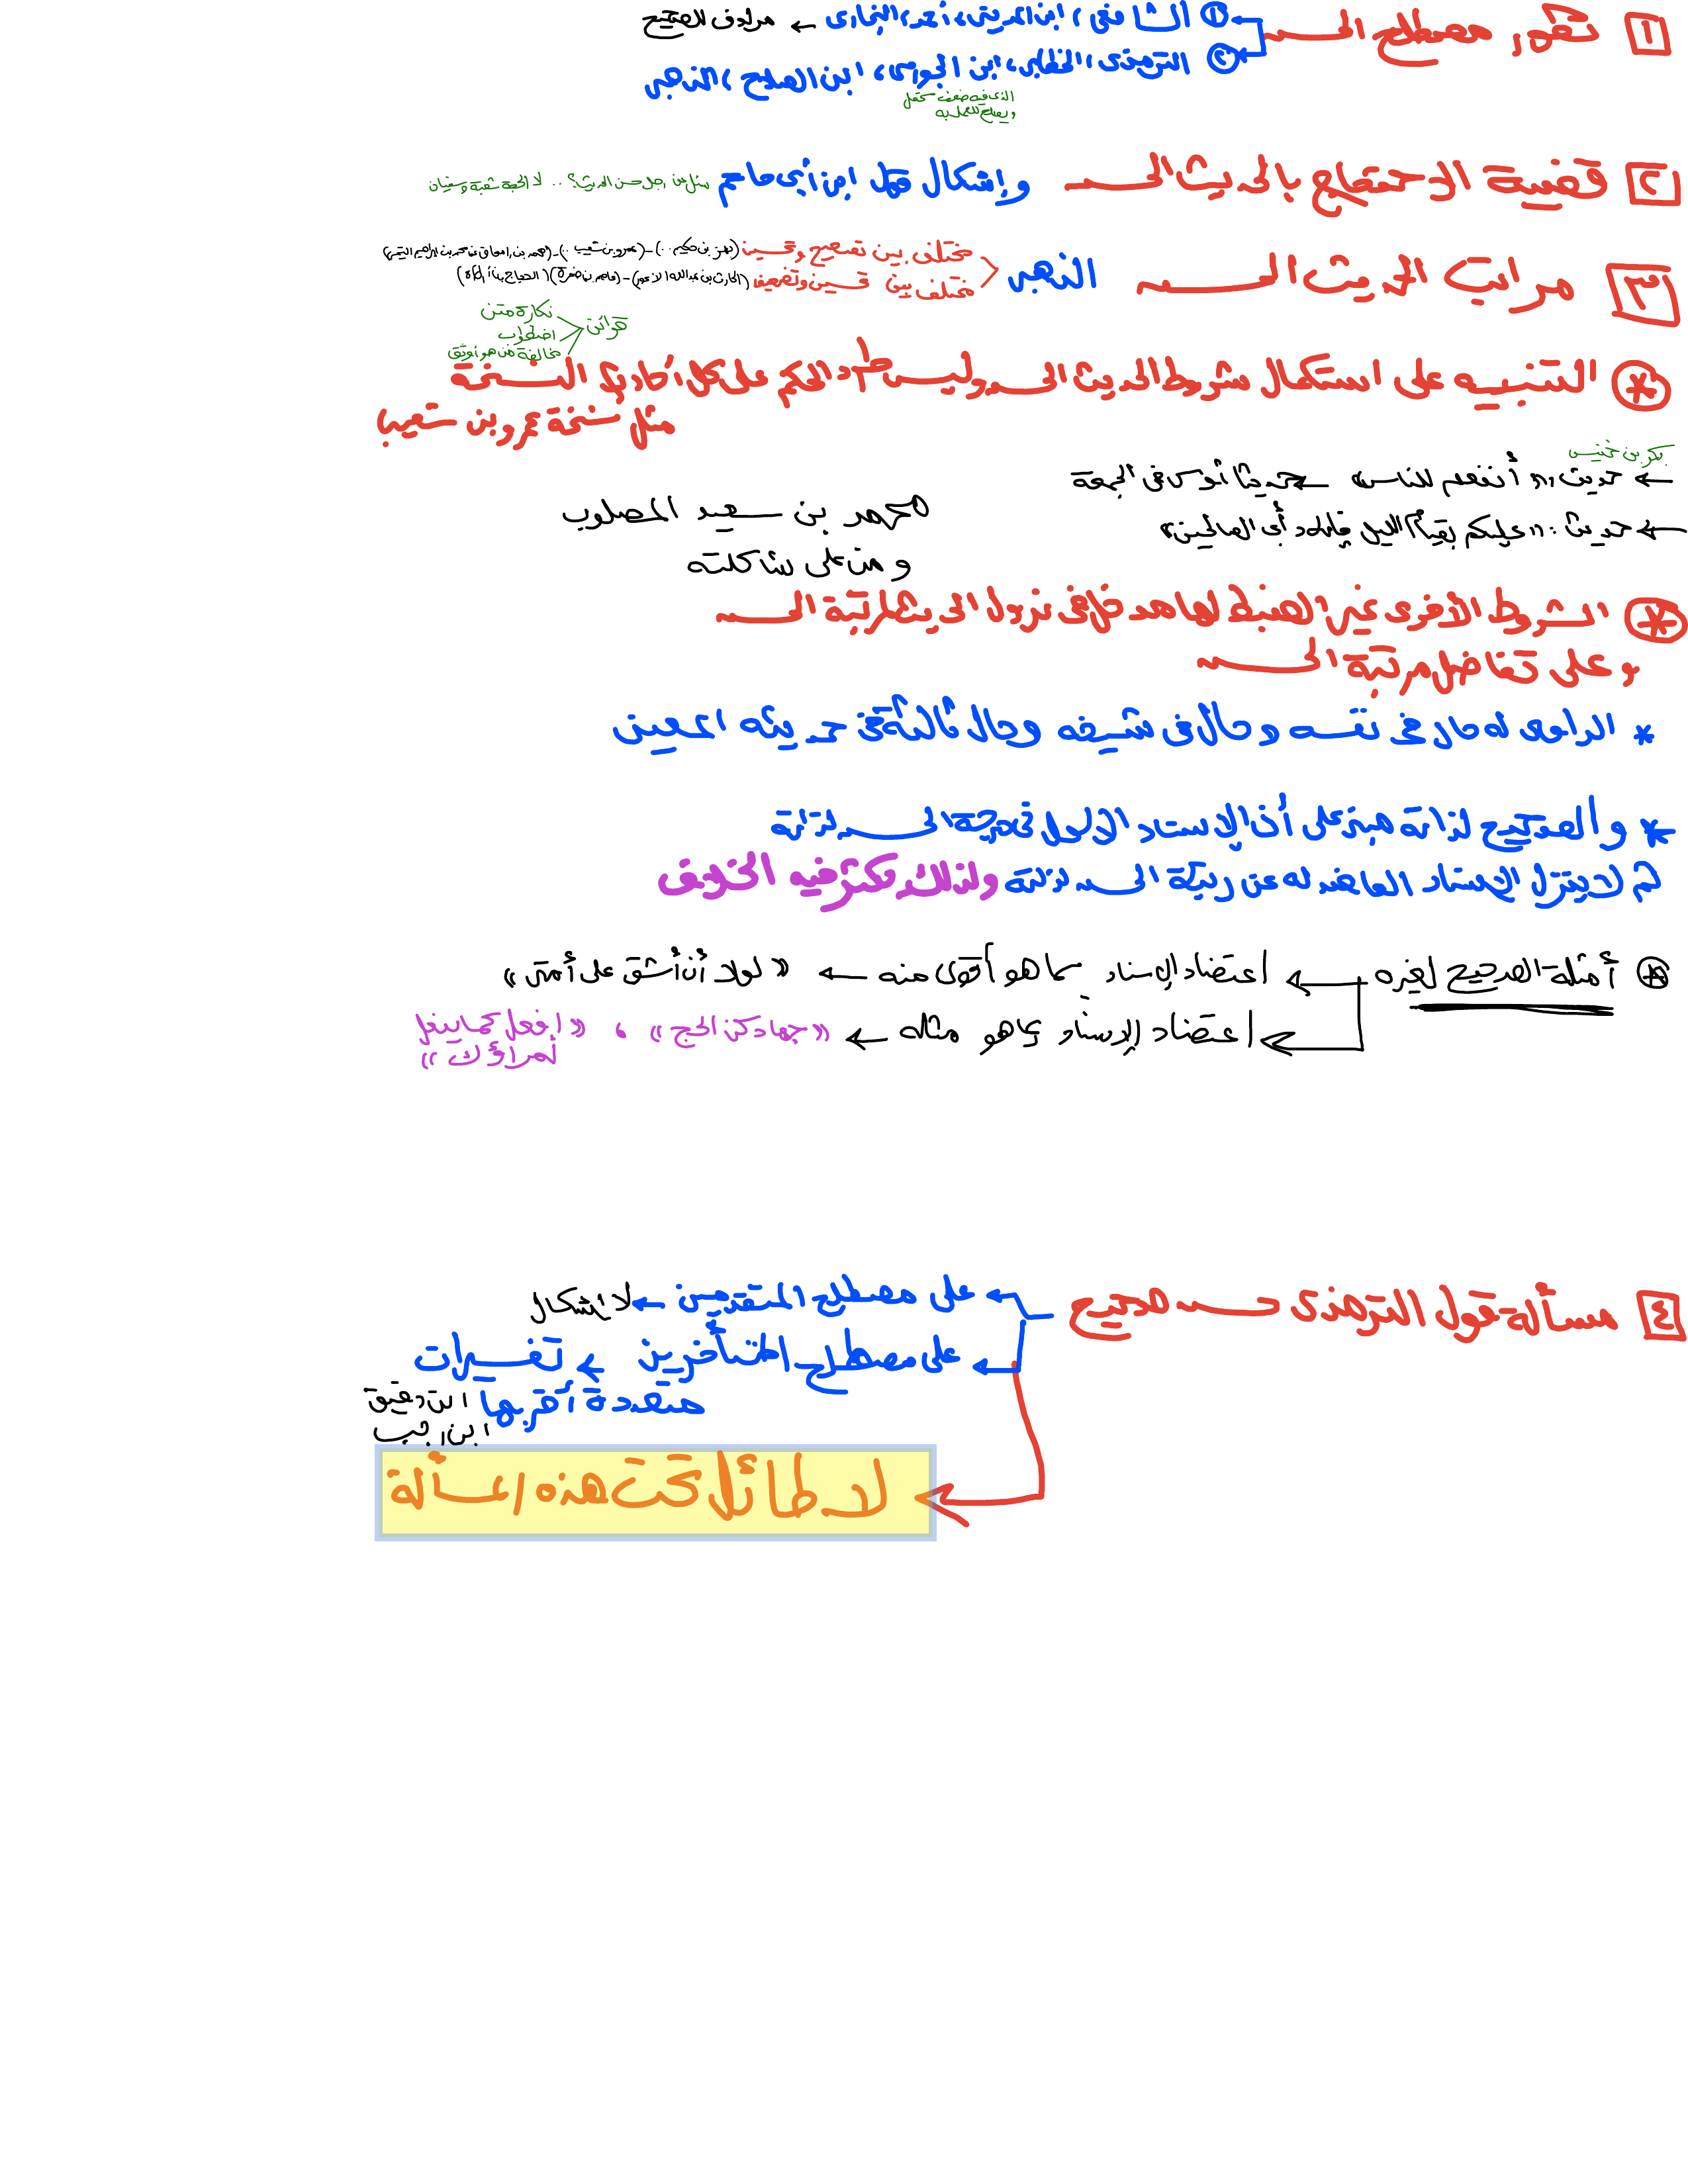 ١ تطور مصطلح الحسن
① الشافعي، ابن المديني، أحمد، البخاري ← مرادف للصحيح
② الترمذي، الخطابي، ابن الجوزي، ابن الصلاح، الذهبي
الذي فيه ضعف محتمل
ويصلح للعمل به
٢ قضية الاحتجاج بالحديث الحسن وإشكال قول ابن أبي حاتم
سئل عن رجل حسن الحديث؟ .. لا الحجة شعبة وسفيان
٣ مراتب الحديث الحسن الذهبي
مختلف بين تصحيح وتحسين (بهز بن حكيم ..) - (عمرو بن شعيب ..) - (محمد بن إسحاق عن محمد بن إبراهيم التيمي)
مختلف بين تحسين وتضعيف (الحارث بن عبد الله الأعور) - (عاصم بن ضمرة) (الحجاج بن أرطأة)
قرائن
نكارة متن
اضطراب
مخالفة من هو أوثق
* التنبيه على استكمال شروط الحديث الحسن وليس طرد الحكم على كل أحاديث النسخة
مثل نسخة عمرو بن شعيب
بكر بن خنيس
← حديث: «أنفعهم للناس» ← حديث أنس في الجمعة
← حديث: «عليكم بقيام الليل فإنه دأب الصالحين»
محمد بن سعيد المصلوب
ومن على شاكلته
* الشروط الأخرى غير الضبط لها مدخل في نزول الحديث لمرتبة الحسن
وعلى تفاضل مرتبة الحسن
* الراوي له حال في نفسه وحال في شيخه وحال ثالثة في حديثه المعين
* والصحيح لذاته مبني على أن الإسناد الأول في درجة الحسن لذاته
ثم لا ينزل الإسناد العاضد له عن رتبة الحسن لذاته ولذلك يكثر فيه الخلاف
* أمثلة الصحيح لغيره ← اعتضاد الإسناد بما هو أقوى منه ← «لولا أن أشق على أمتي»
← اعتضاد الإسناد بما هو مثله ← «جهادكن الحج»، «افعل كما يفعل
أمراؤك»
٤ مسألة قول الترمذي حسن صحيح
← على مصطلح المتقدمين ← لا إشكال
← على مصطلح المتأخرين ← تفسيرات
متعددة أقربها ابن دقيق
ابن رجب
← لا طائل تحت هذه المسألة